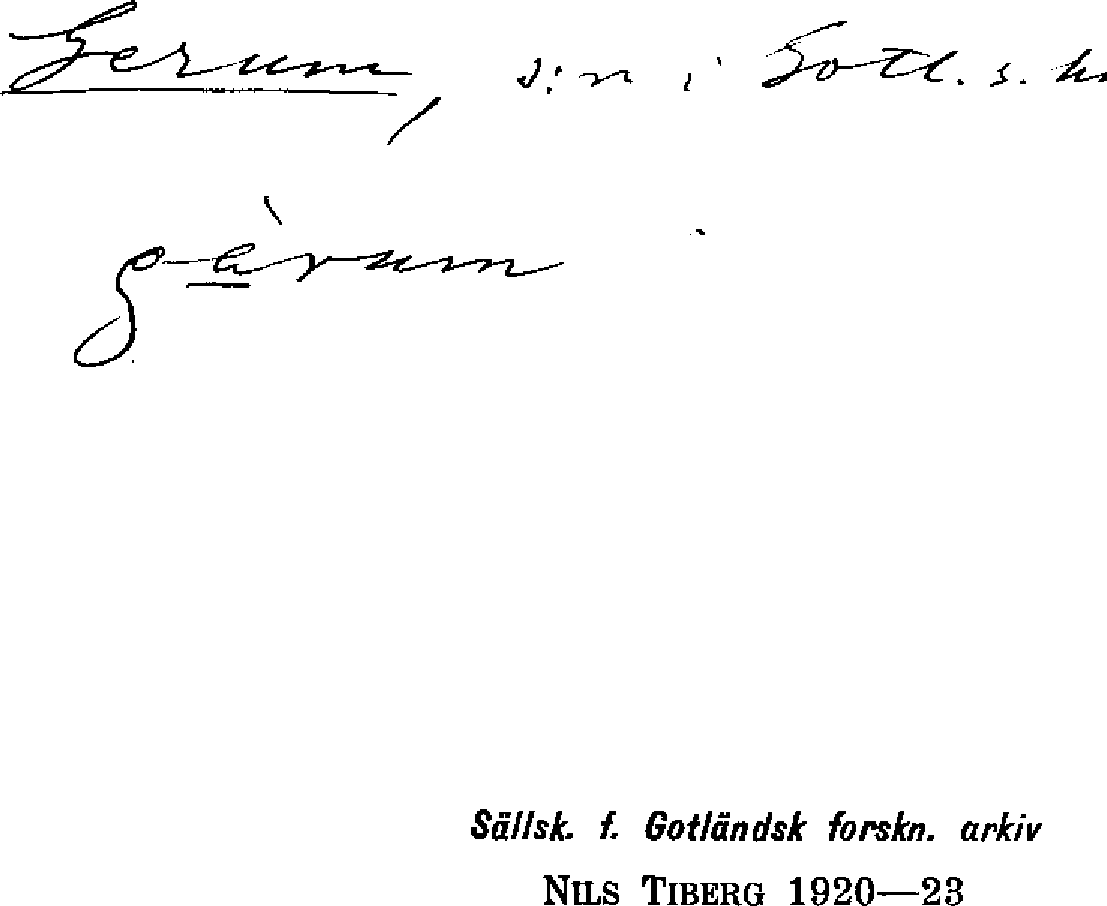 Gerum, s:n i Gotl. s. h
gàrum
Sällsk. f. Gotländsk forskn. arkiv
NILS TIBERG 1920—23